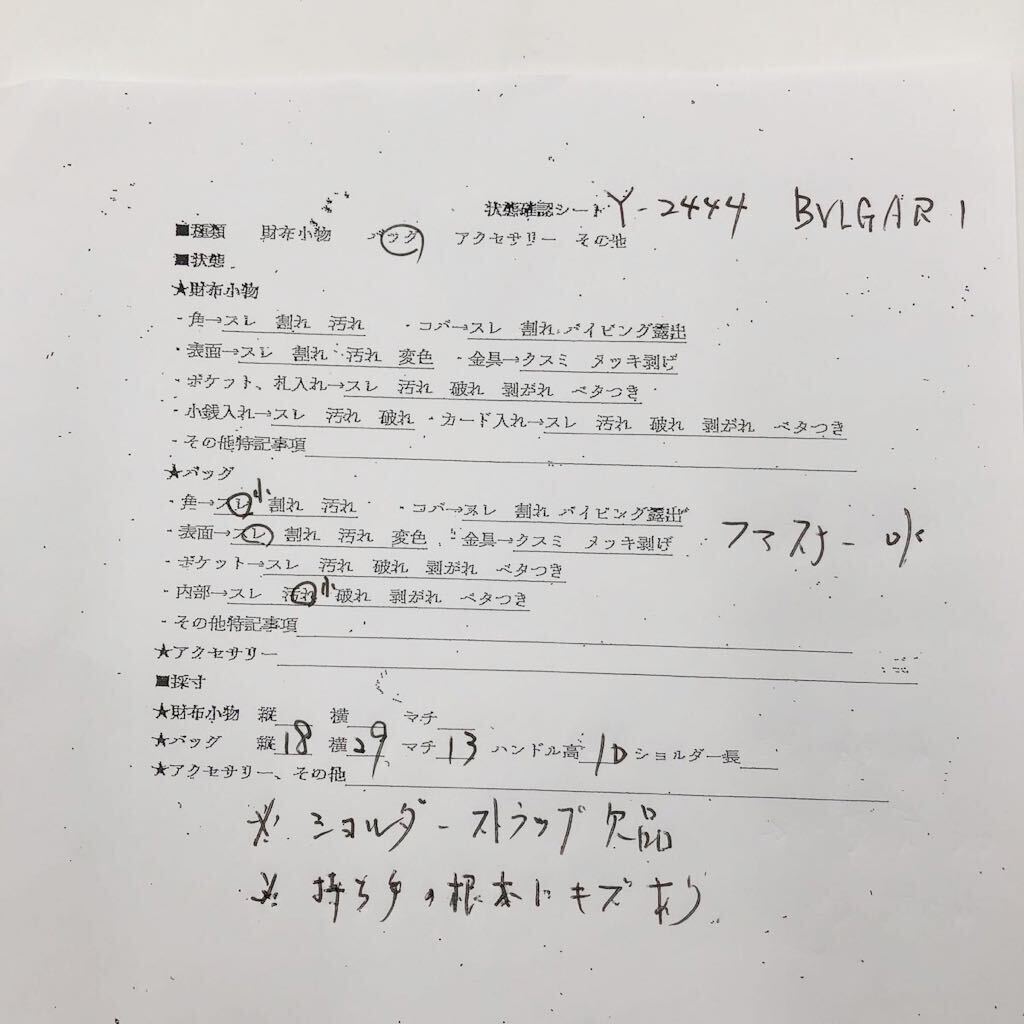 状態確認シート Y-2444 BVLGARI
■種類 財布小物 バッグ アクセサリー その他
■状態
★財布小物
・角→スレ 割れ 汚れ ・コバ→スレ 割れ パイピング露出
・表面→スレ 割れ 汚れ 変色 ・金具→クスミ メッキ剥げ
・ポケット、札入れ→スレ 汚れ 破れ 剥がれ ベタつき
・小銭入れ→スレ 汚れ 破れ ・カード入れ→スレ 汚れ 破れ 剥がれ ベタつき
・その他特記事項
★バッグ
・角→スレ小 割れ 汚れ ・コバ→スレ 割れ パイピング露出
・表面→スレ 割れ 汚れ 変色 ・金具→クスミ メッキ剥げ ファスナー
・ポケット→スレ 汚れ 破れ 剥がれ ベタつき
・内部→スレ 汚れ小 破れ 剥がれ ベタつき
・その他特記事項
★アクセサリー
■採寸
★財布小物 縦 横 マチ
★バッグ 縦18 横29 マチ13 ハンドル高10 ショルダー長
★アクセサリー、その他
※ ショルダーストラップ欠品
※ 持ち手の根本にキズあり